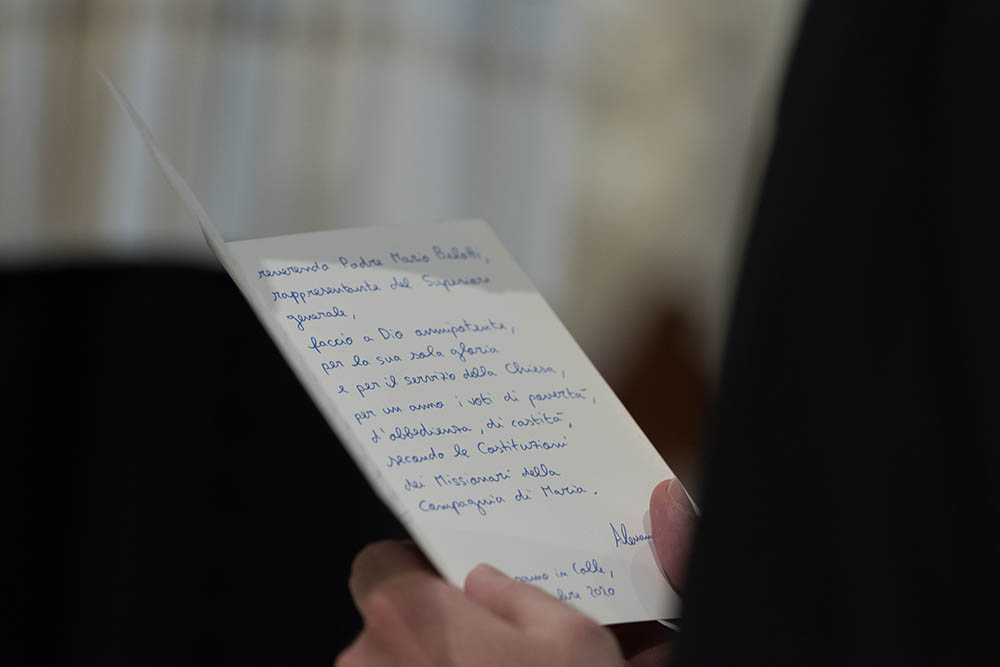 reverendo Padre Mario Belotti,
rappresentante del Superiore
generale,
faccio a Dio onnipotente,
per la sua sola gloria
e per il servizio della Chiesa,
per un anno i voti di povertà,
d'obbedienza, di castità,
secondo le Costituzioni
dei Missionari della
Compagnia di Maria.
in Colle,
2020